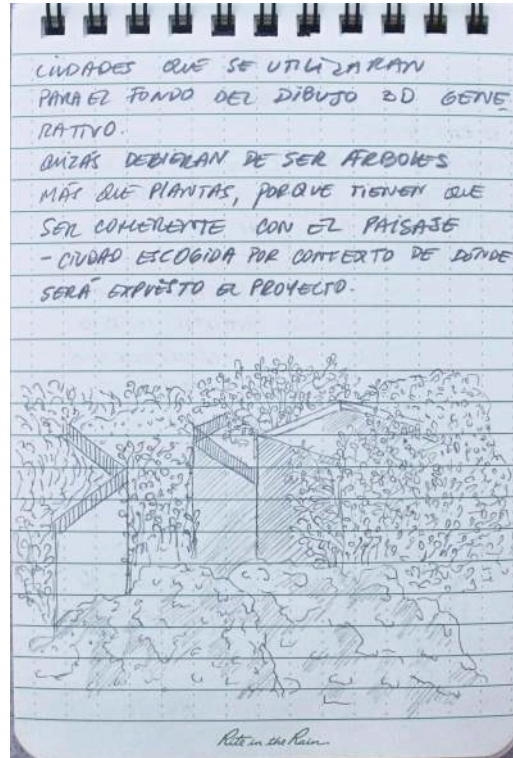 CIUDADES QUE SE UTILIZARAN
PARA EL FONDO DEL DIBUJO 3D GENE
RATIVO.
QUIZÁS DEBIERAN DE SER ÁRBOLES
MÁS QUE PLANTAS, PORQUE TIENEN QUE
SER COHERENTE CON EL PAISAJE
- CIUDAD ESCOGIDA POR CONTEXTO DE DÓNDE
SERÁ EXPUESTO EL PROYECTO.
Rite in the Rain